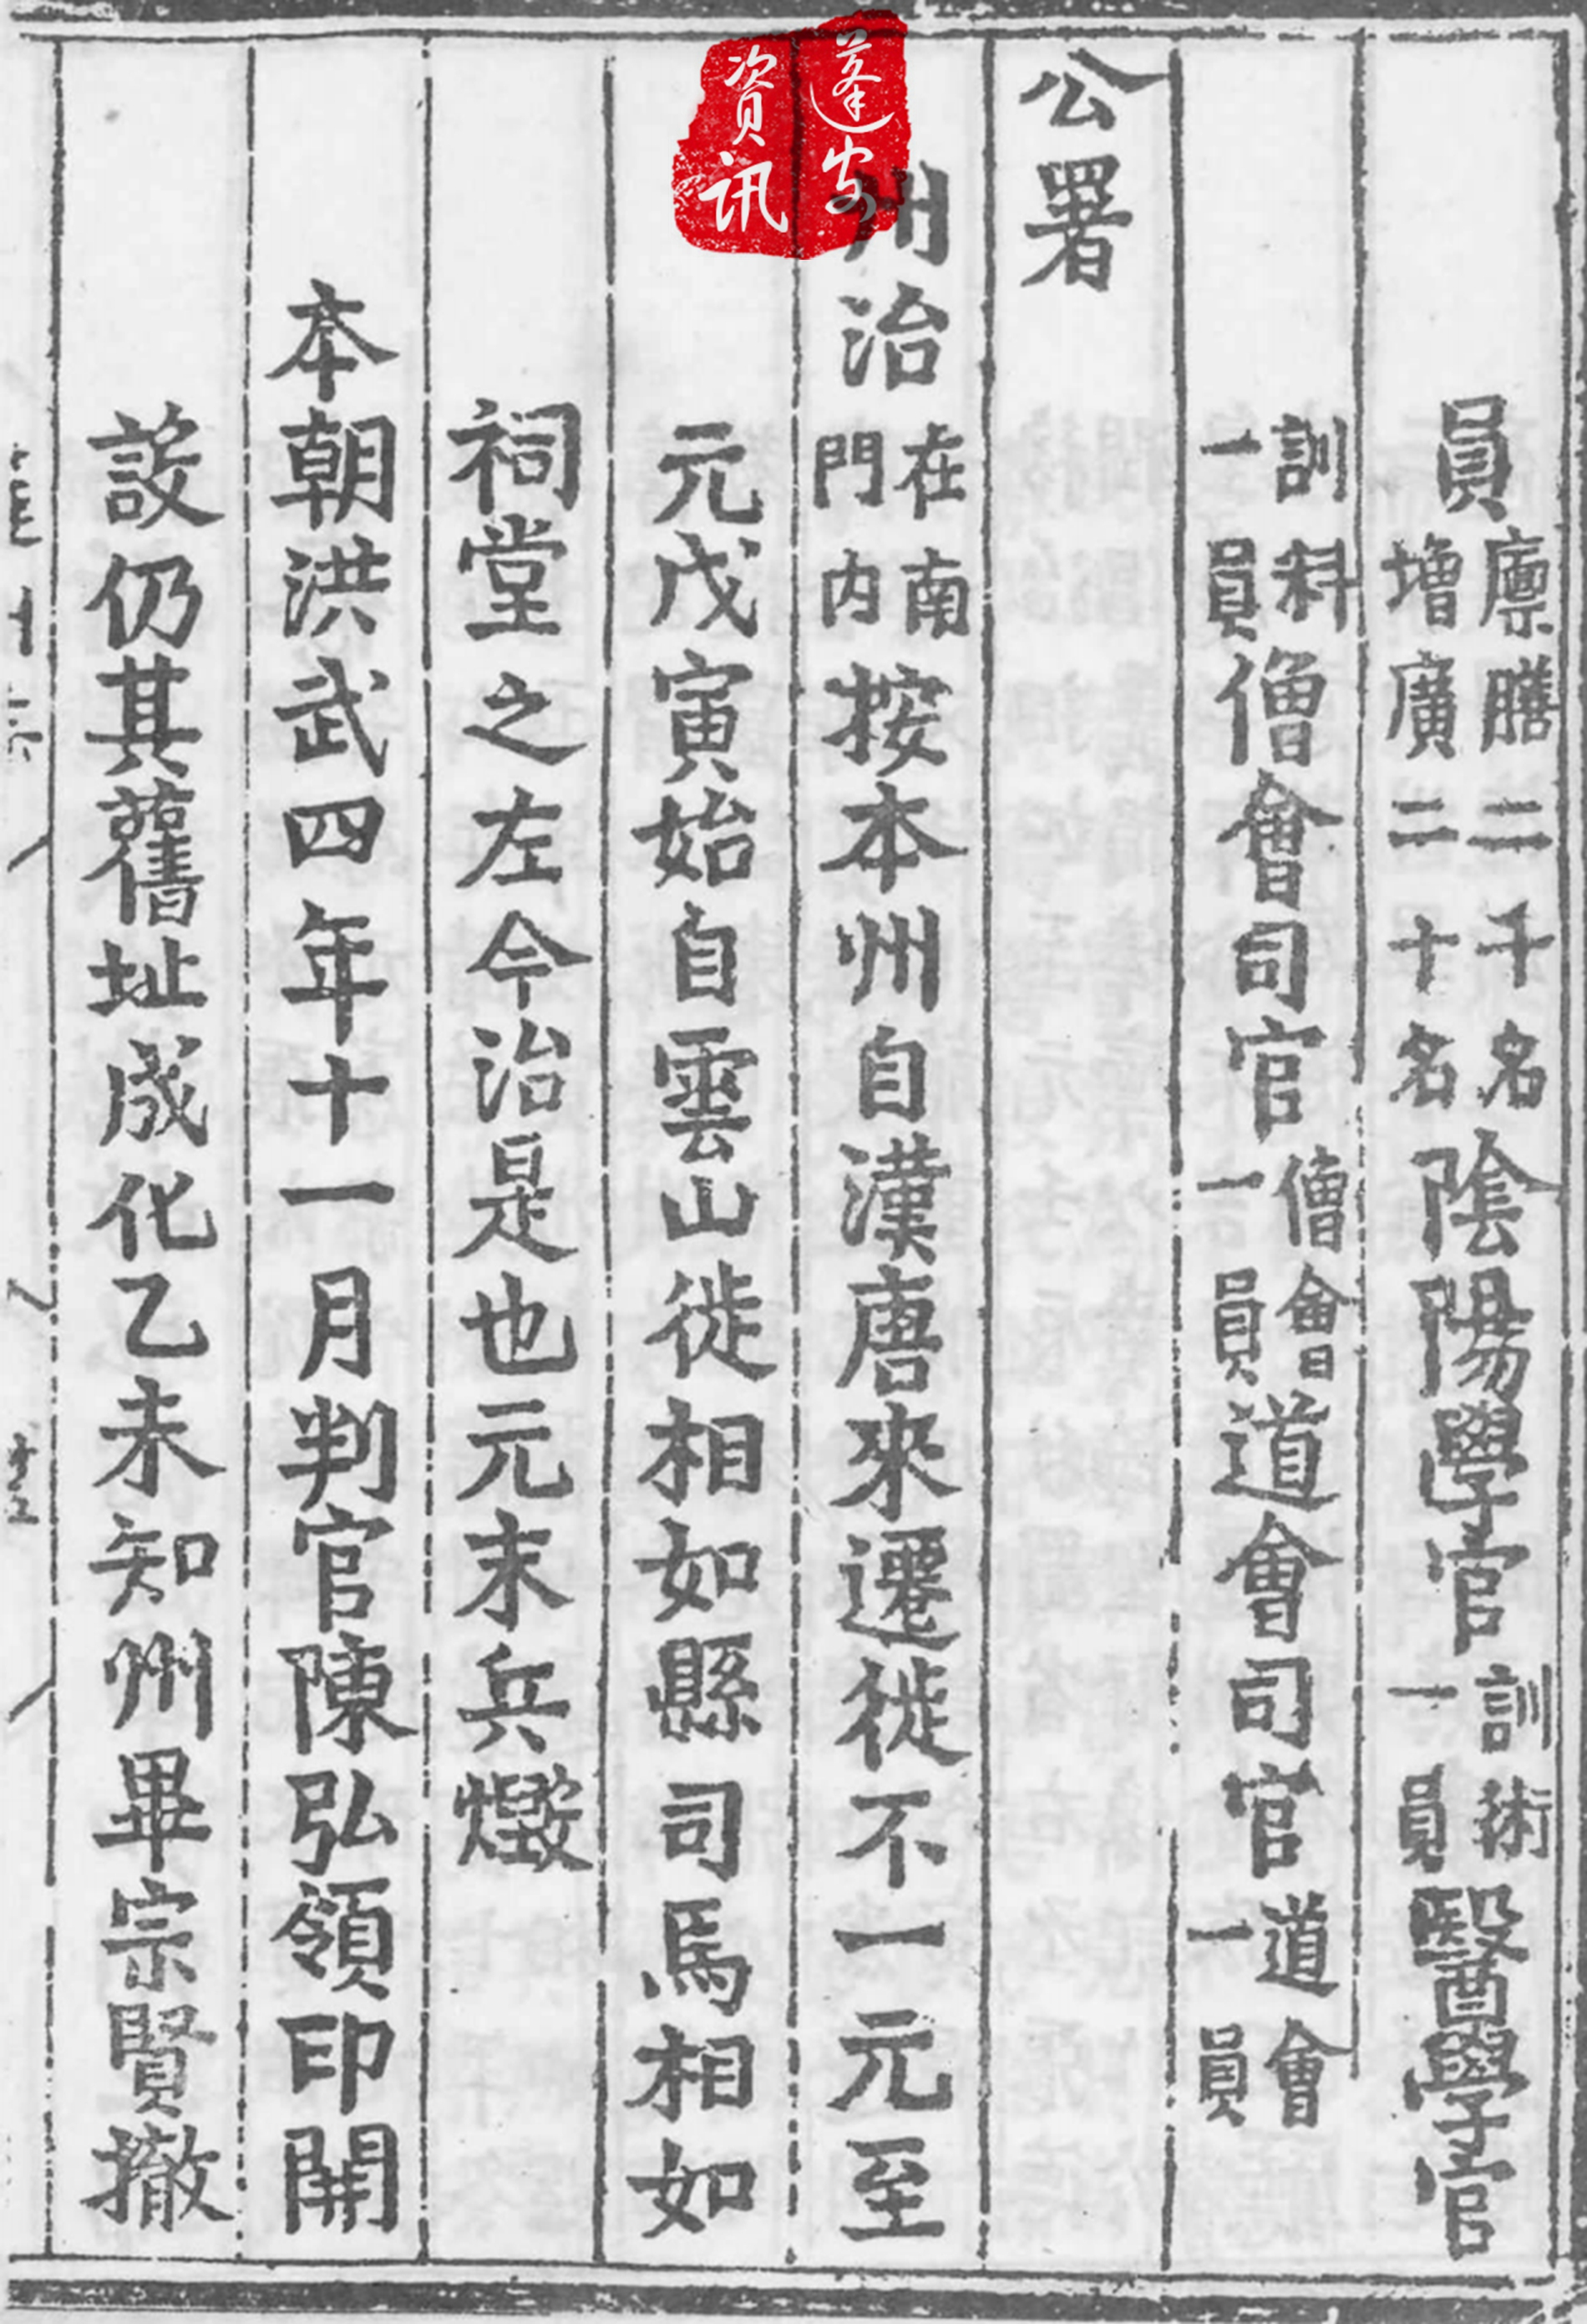 員廪膳二千名增廣二十名陰陽學官訓術一員醫學官
訓科一員僧會司官僧會一員道會司官道會一員
公署
州治在南門内按本州自漢唐來遷徙不一元至
元戊寅始自雲山徙相如縣司馬相如
祠堂之左今治是也元末兵燬
本朝洪武四年十一月判官陳弘領印開
設仍其舊址成化乙未知州畢宗賢撤
蓬安
資訊